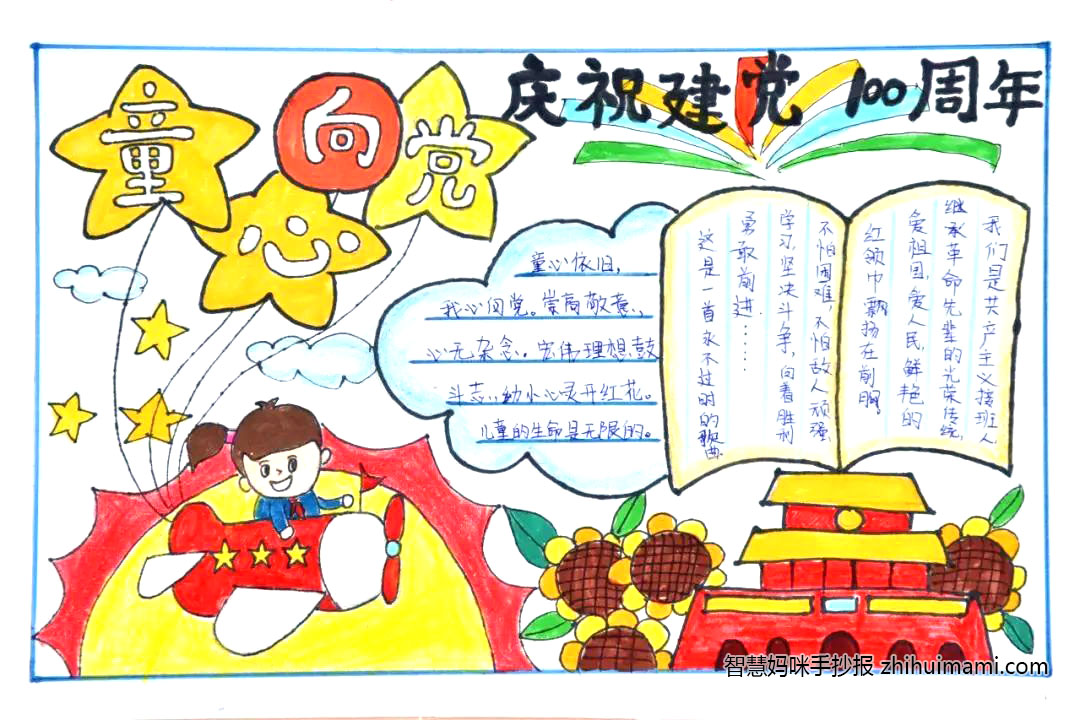 童心向党
庆祝建党100周年
童心依旧,
我心向党。崇高敬意,,
心无杂念。宏伟理想鼓
斗志,,幼小心灵开红花。
儿童的生命是无限的。
我们是共产主义接班人
继承革命先辈的光荣传统,
爱祖国,爱人民,鲜艳的
红领巾飘扬在前胸,
不怕困难,不怕敌人顽强
学习,坚决斗争,向着胜利
勇敢前进......
这是一首永不过时的歌曲.
智慧妈咪手抄报 zhihuimami.com